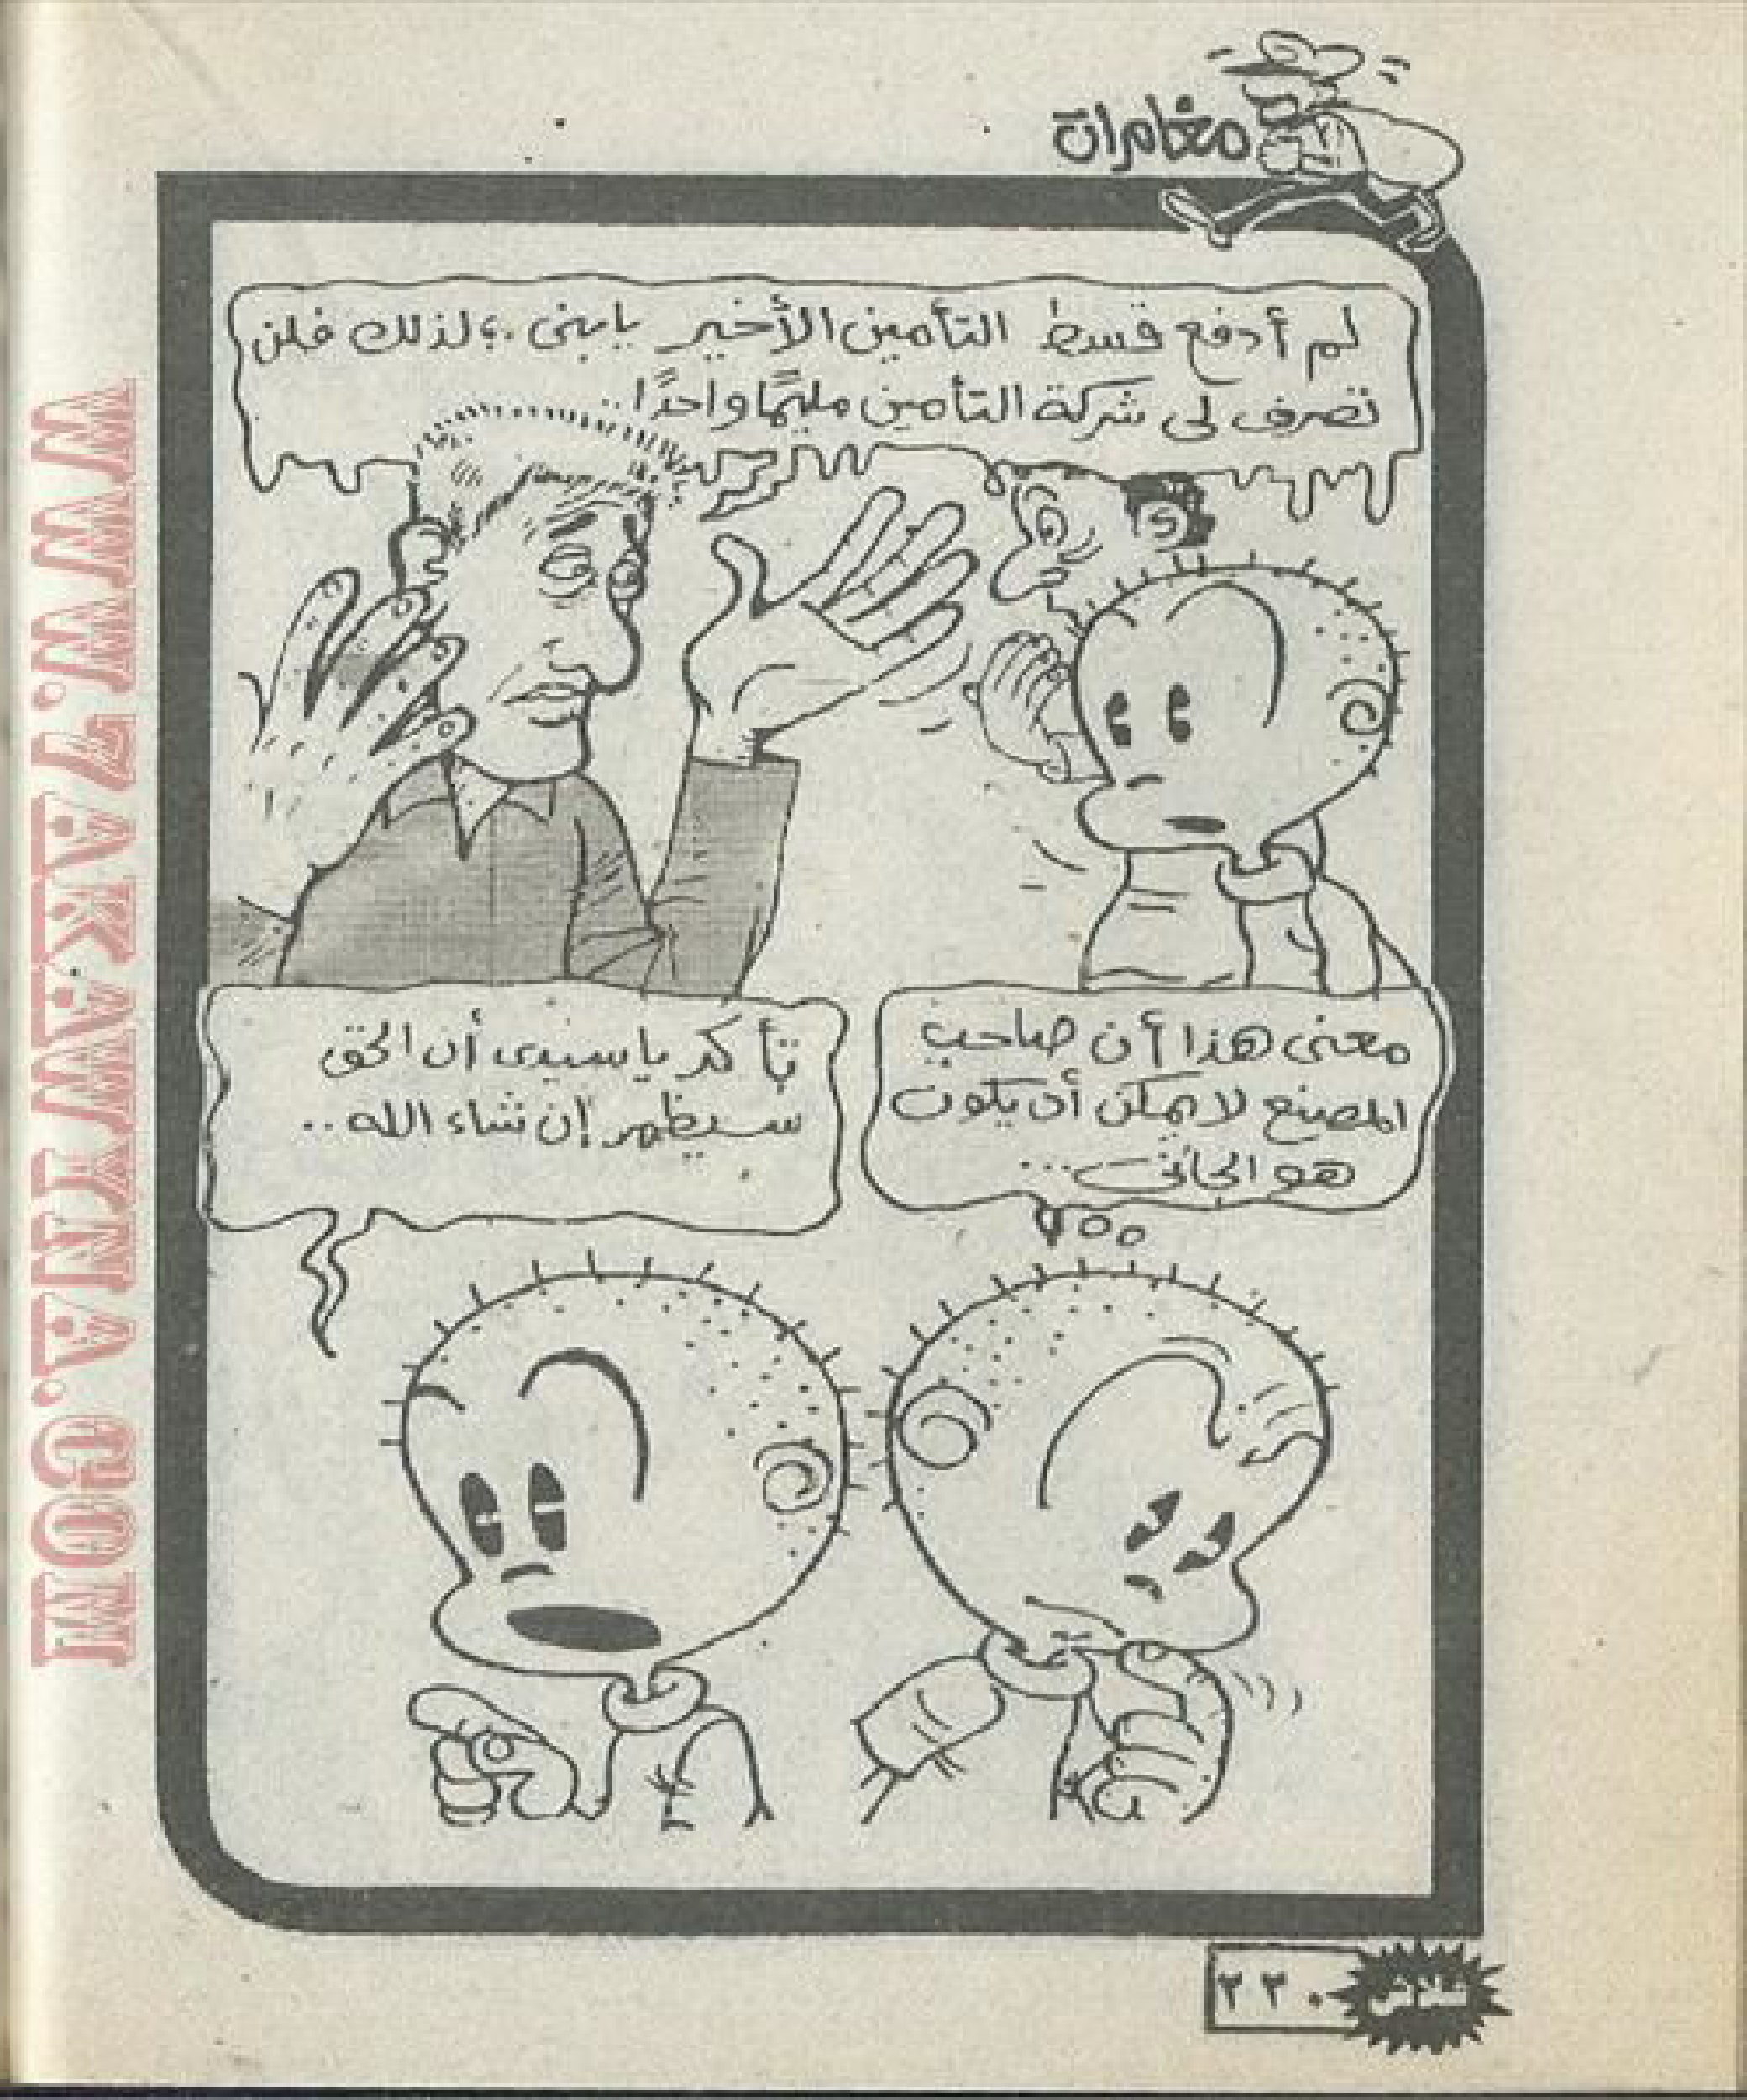 مغامرات
لم أدفع قسط التأمين الأخير يابنى .؟ لذلك فلن
تصرف لى شركة التأمين مليمًا واحدًا..
معنى هذا أن صاحب
المصنع لا يمكن أن يكون
هو الجانى...
تأكد يا سيدى أن الحق
سيظهر إن شاء الله ..
فلاش
٢٢٠
WWW.7AKAWATNA.COM